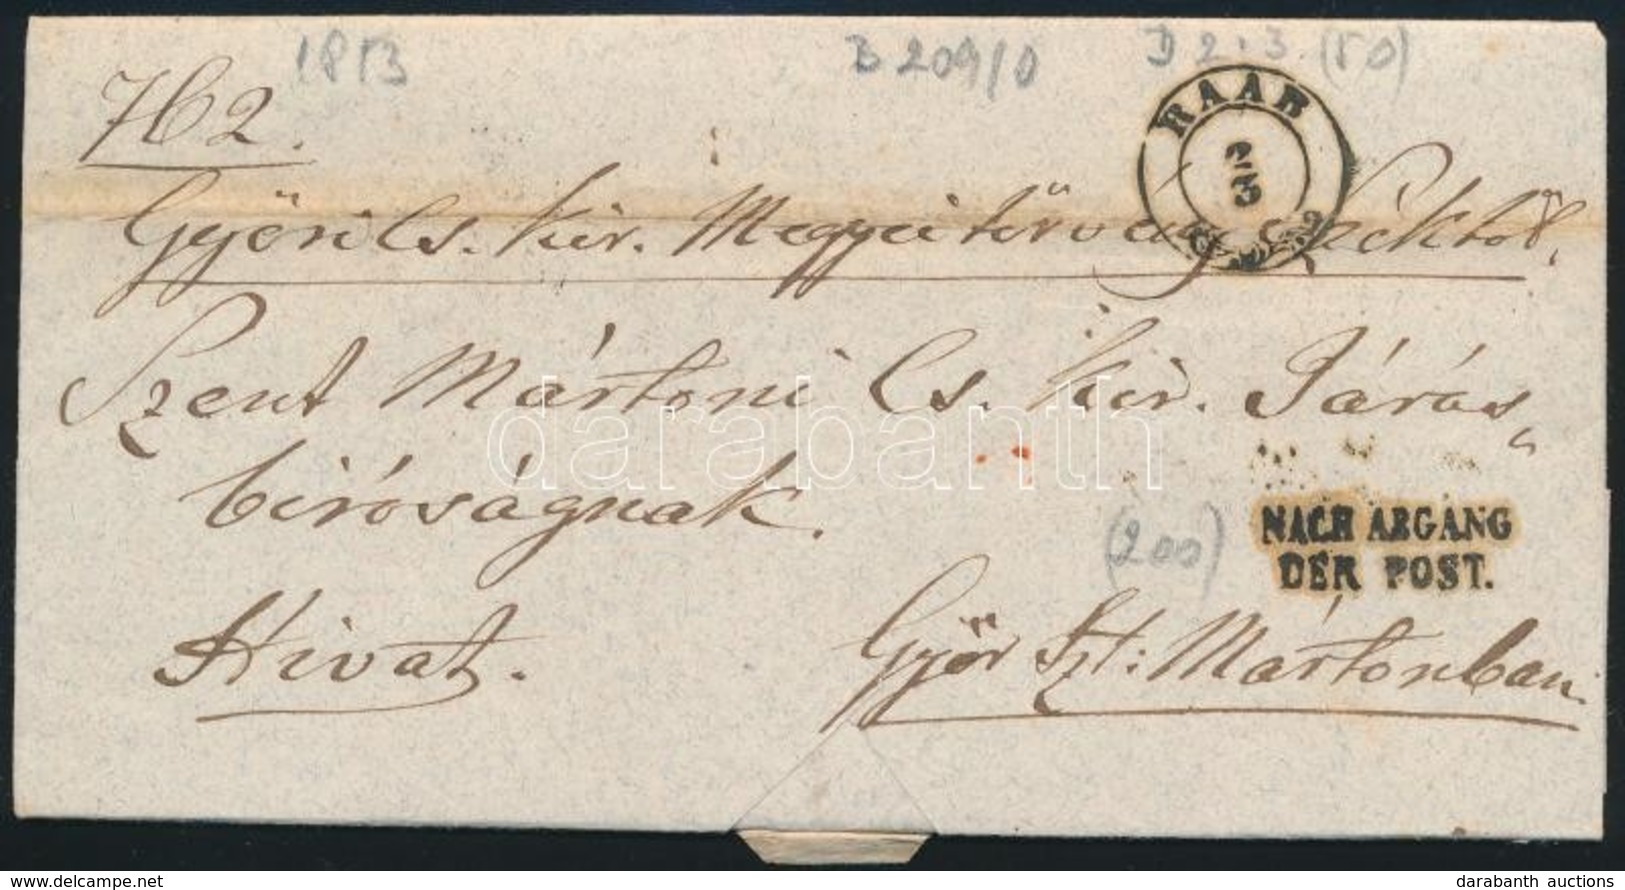 1853 B 209/0 D 2.3. (50)
762.
RAAB
2/3
Győri Cs. kir. Megyei törvényszéktől.
Szent Mártoni Cs. kir. Járás„
biróságnak.
darabanth
(200)
NACH ABGANG
DER POST.
Hivat.
Győr Szt: Mártonban
www.delcampe.net
darabanth auctions